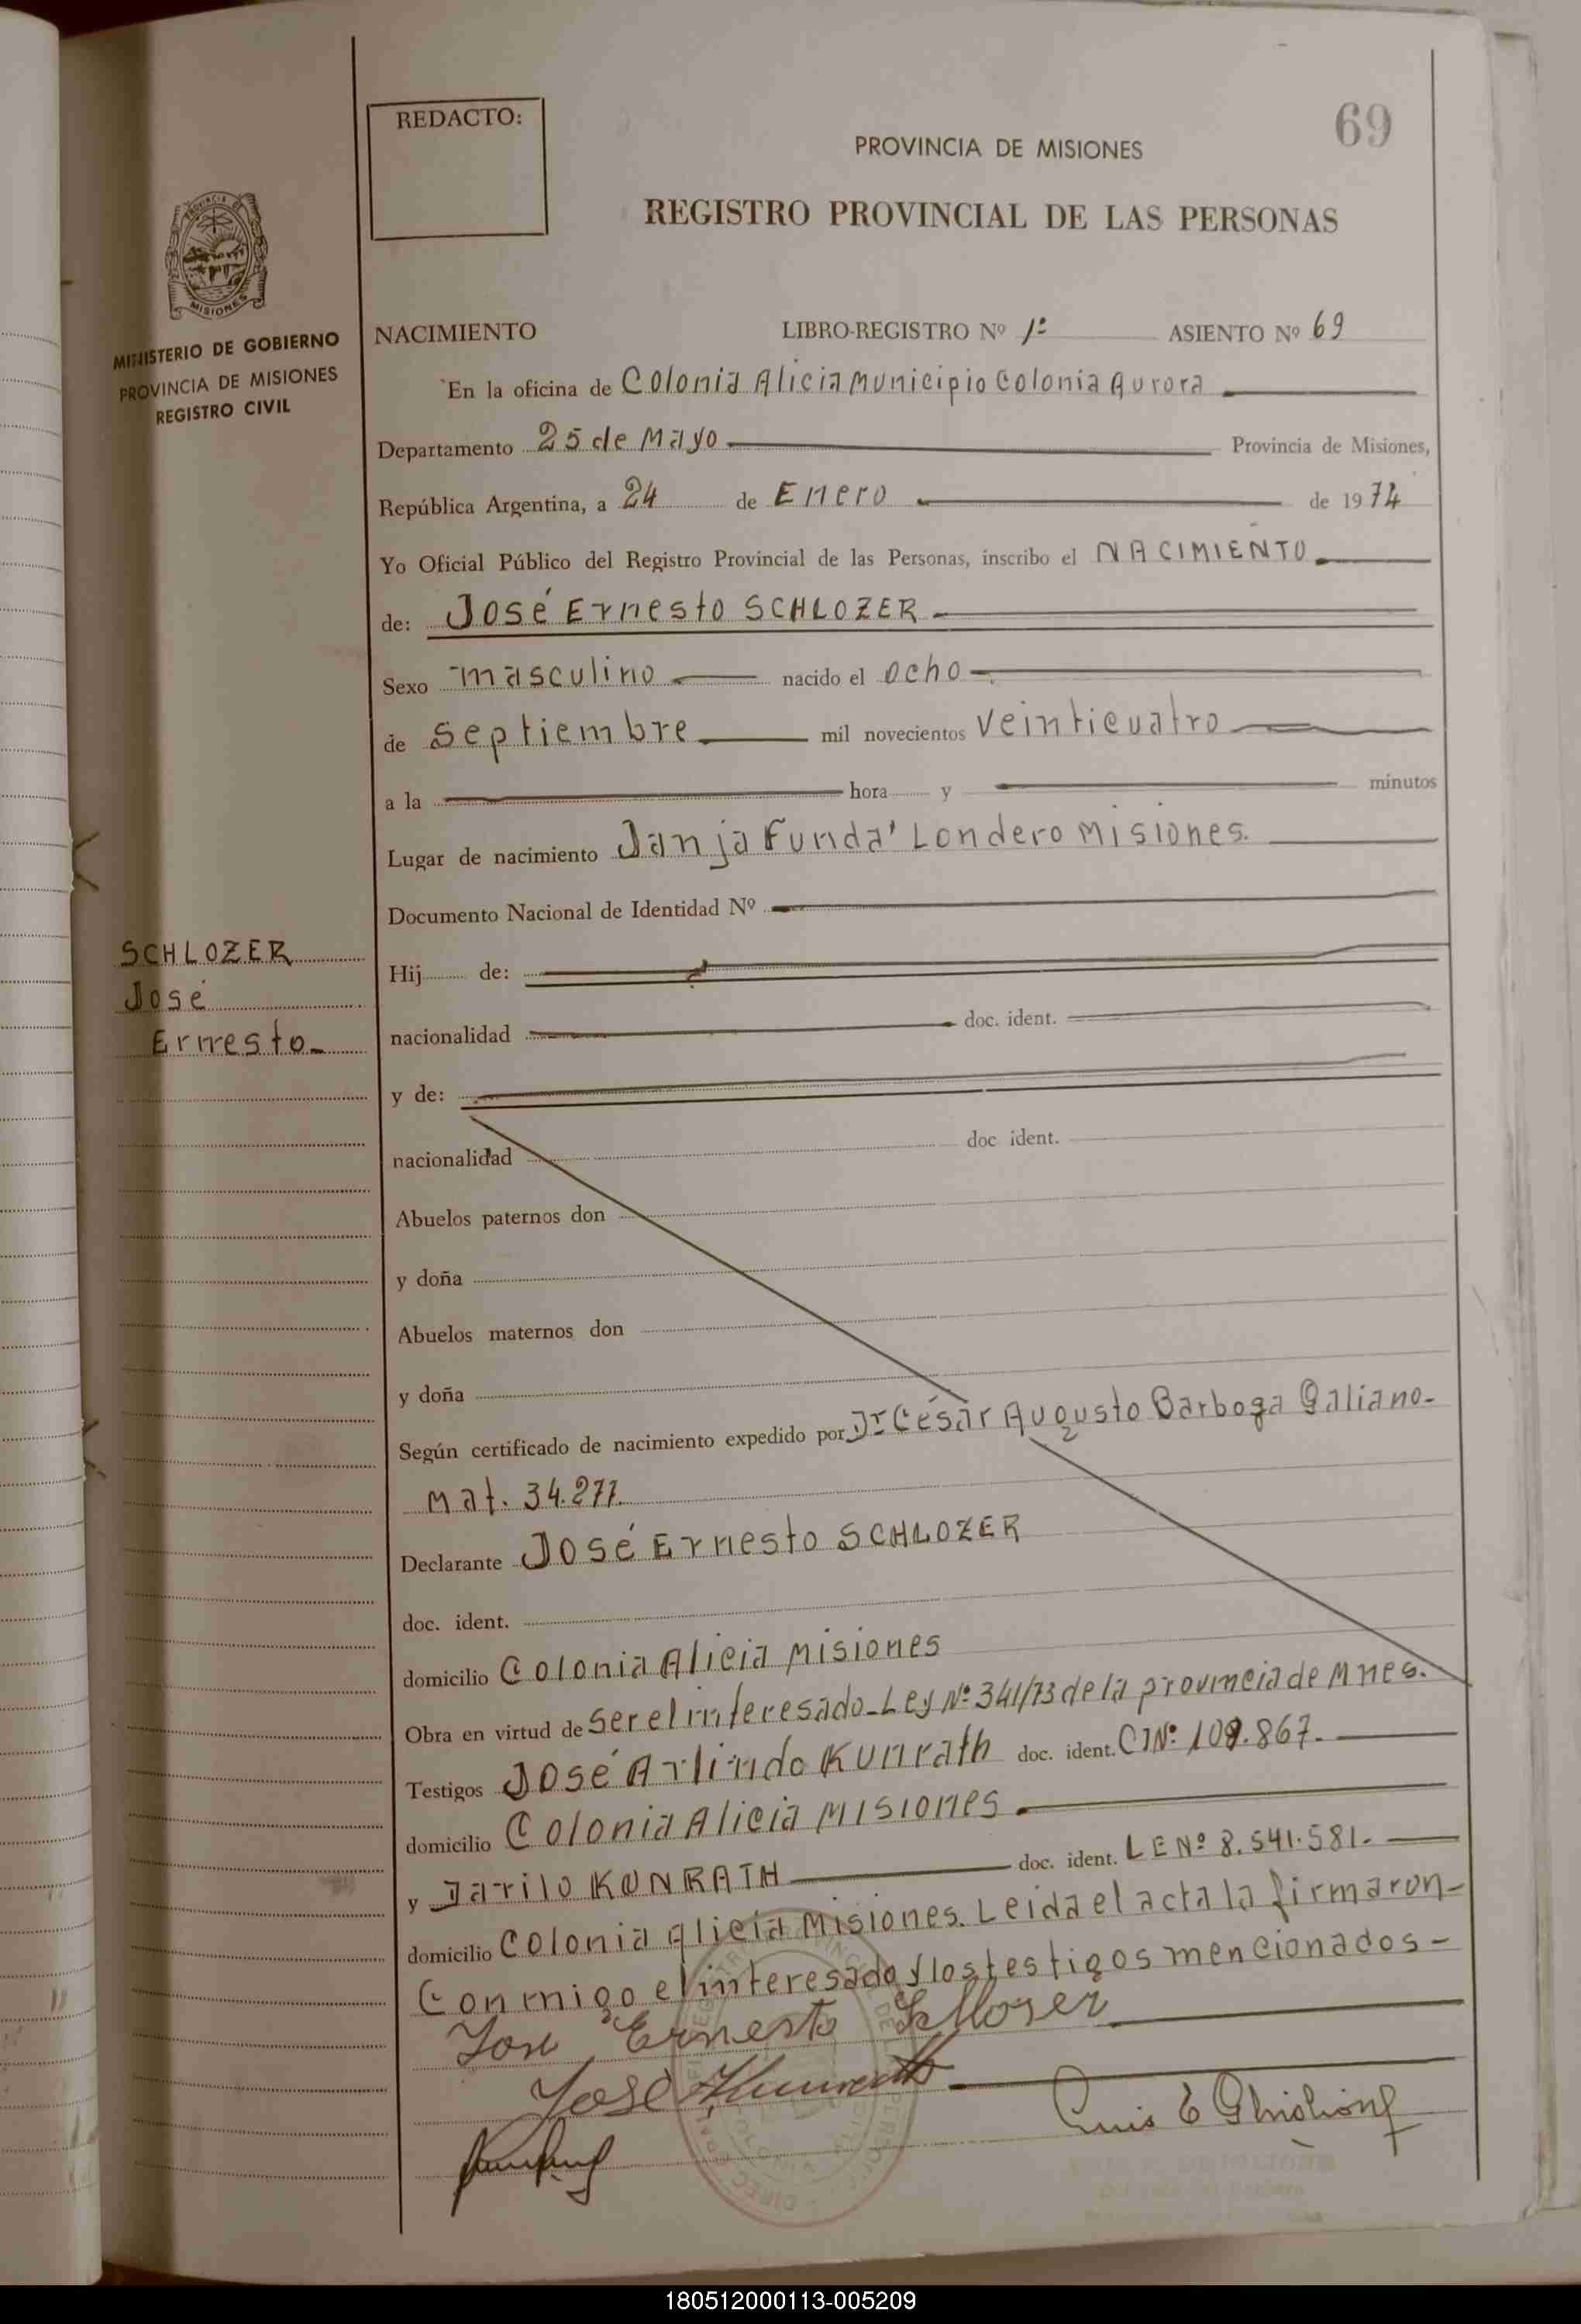 69
REDACTO:
PROVINCIA DE MISIONES
REGISTRO PROVINCIAL DE LAS PERSONAS
MISIONES
MINISTERIO DE GOBIERNO
PROVINCIA DE MISIONES
REGISTRO CIVIL
NACIMIENTO LIBRO-REGISTRO Nº 1º ASIENTO Nº 69
En la oficina de Colonia Alicia Municipio Colonia Aurora
Departamento 25 de Mayo Provincia de Misiones,
República Argentina, a 24 de Enero de 1974
Yo Oficial Público del Registro Provincial de las Personas, inscribo el NACIMIENTO
de: José Ernesto SCHLOZER
Sexo masculino nacido el ocho
de septiembre mil novecientos veinticuatro
a la hora y minutos
Lugar de nacimiento Janja Funda' Londero Misiones.
Documento Nacional de Identidad Nº
SCHLOZER
José
Ernesto
Hij de:
nacionalidad doc. ident.
y de:
nacionalidad doc ident.
Abuelos paternos don
y doña
Abuelos maternos don
y doña
Según certificado de nacimiento expedido por Dr César Augusto Barboga Galiano-
Mat. 34.277.
Declarante José Ernesto SCHLOZER
doc. ident.
domicilio Colonia Alicia Misiones
Obra en virtud de Ser el interesado-Ley Nº 341/73 de la provincia de Mnes.
Testigos José Arlindo Kunrath doc. ident. CIN: 109.867.
domicilio Colonia Alicia MISIONES
y Darilo KUNRATH doc. ident. LE Nº 8.541.581.
domicilio Colonia Alicia Misiones. Leida el acta la firmaron-
Conmigo el interesado y los testigos mencionados-
Jose Ernesto Schloser
José Kunrath
Luis E
180512000113-005209